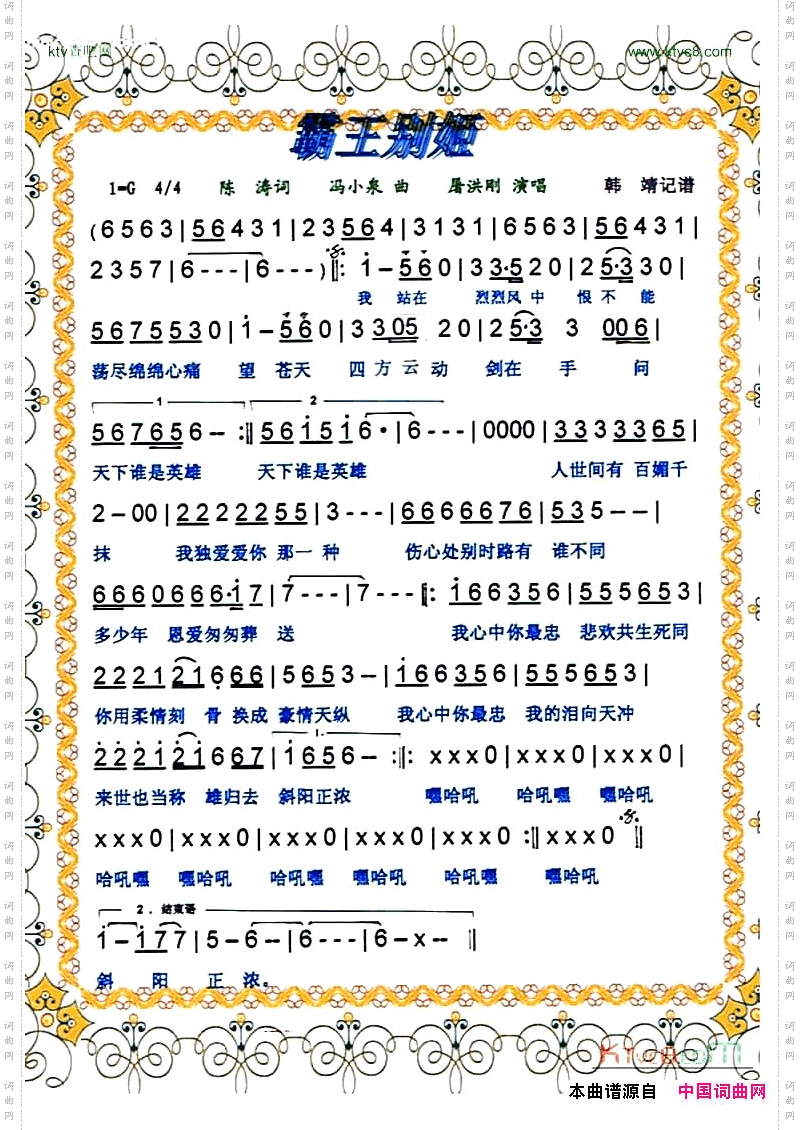 ktv查吧网 www.ktvc8.com
霸王别姬
1=G 4/4 陈 涛词 冯小泉 曲 屠洪刚 演唱 韩 靖记谱
(6563|56431|23564|3131|6563|56431|
2357|6---|6---)‖: i-560|33·520|25·330|
我 站在 烈烈风 中 恨 不 能
5675530|i-560|3305 20|25·3 3 006|
荡尽绵绵心痛 望 苍天 四 方 云 动 剑在 手 问
1 2
567656-- :‖56i5i6·|6---|0000|33333365|
天下谁是英雄 天下谁是英雄 人世间有 百媚千
2-00|22222255|3---|66666676|535--|
抹 我独爱爱你 那一 种 伤心处别时路有 谁不同
6660666·i7|7---|7---‖: i66356|555653|
多少年 恩爱匆匆葬 送 我心中你最忠 悲欢共生死同
222121666|5653-|i66356|555653|
你用柔情刻 骨 换成 豪情天纵 我心中你最忠 我的泪向天冲
1.
222i2i667|i656- :‖: xxx0|xxx0|xxx0|
来世也当称 雄归去 斜阳正浓 嘿哈吼 哈吼嘿 嘿哈吼
xxx0|xxx0|xxx0|xxx0|xxx0 :‖xxx0 ‖
哈吼嘿 嘿哈吼 哈吼嘿 嘿哈吼 哈吼嘿 嘿哈吼
2.结束语
i-i77|5-6--|6---|6-x-- ‖
斜 阳 正 浓。
本曲谱源自 中国词曲网
词曲网